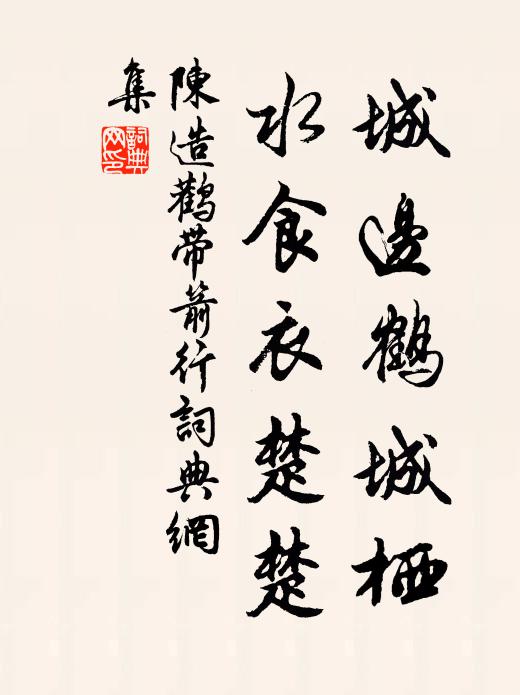 城邊鶴城栖
水食衣楚楚
陳造鸛帶箭行詞典網
集
詞典网印